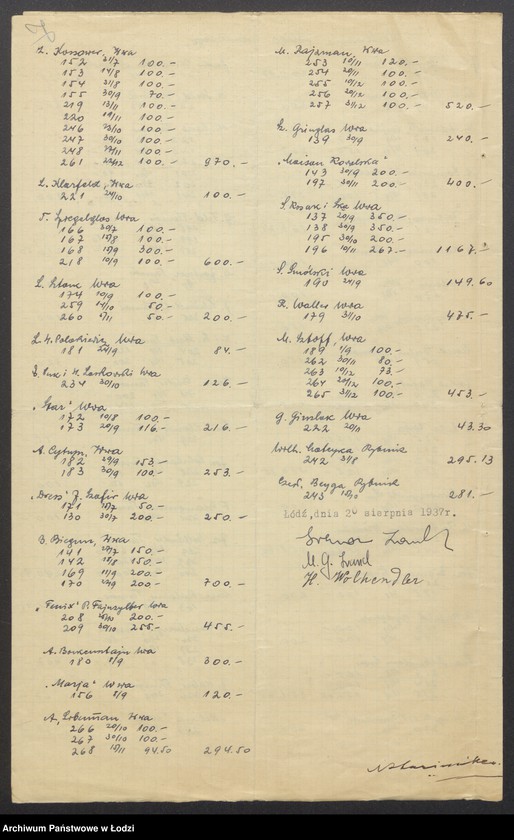 Z. Kossower, Wwa
152 31/7 100.-
153 14/8 100.-
154 31/8 100.-
155 30/9 70.-
219 13/11 100.-
220 19/11 100.-
246 23/10 100.-
247 30/10 100.-
248 27/11 100.-
261 22/12 100.- 970.-
L. Klarfeld, Wwa
221 100.-
Szpegelglas Wwa
166 30/7 100.-
167 100.-
168 300.-
218 10/9 100.- 600.-
174 10/9 100.-
259 14/10 50.-
260 50.- 200.-
Polakiewicz Wwa
181 84.-
Lux i H. Laskowski Wwa
234 30/10 126.-
"Star" Wwa
172 10/8 100.-
173 20/9 116.- 216.-
A. Cytryn, Wwa
182 29/9 153.-
183 30/9 100.- 253.-
J. Szafir Wwa
171 50.-
130 30/7 200.- 250.-
B. Biegun, Wwa
141 150.-
142 150.-
169 200.-
170 200.- 700.-
"Fenix" P. Fajnzylber Wwa
208 200.-
209 30/10 255.- 455.-
A. Borensztajn Wwa
180 8/9 300.-
"Marja" Wwa
156 8/9 120.-
A. Wwa
266 20/10 100.-
267 30/10 100.-
268 94.50 294.50
M. Zajaman, Wwa
253 10/11 120.-
254 20/11 100.-
255 10/12 100.-
256 20/12 100.-
257 31/12 100.- 520.-
Gringlas Wwa
139 30/9 240.-
"Maison Kowalska"
143 30/9 200.-
197 30/11 200.- 400.-
S. Wwa
137 20/9 350.-
138 30/9 350.-
195 30/10 200.-
196 10/11 267.- 1167.-
S. Wwa
190 149.60
Waller Wwa
179 31/10 475.-
M. Sztoff, Wwa
189 100.-
262 30/11 80.-
263 10/12 73.-
264 20/12 100.-
265 31/12 100.- 453.-
G. Wwa
222 20/11 43.30
Rybnik
242 31/8 295.13
Beyga Rybnik
243 281.-
Łódź, dnia 20 sierpnia 1937r.
M. G.
H. Wolhendler
Archiwum Państwowe w Łodzi